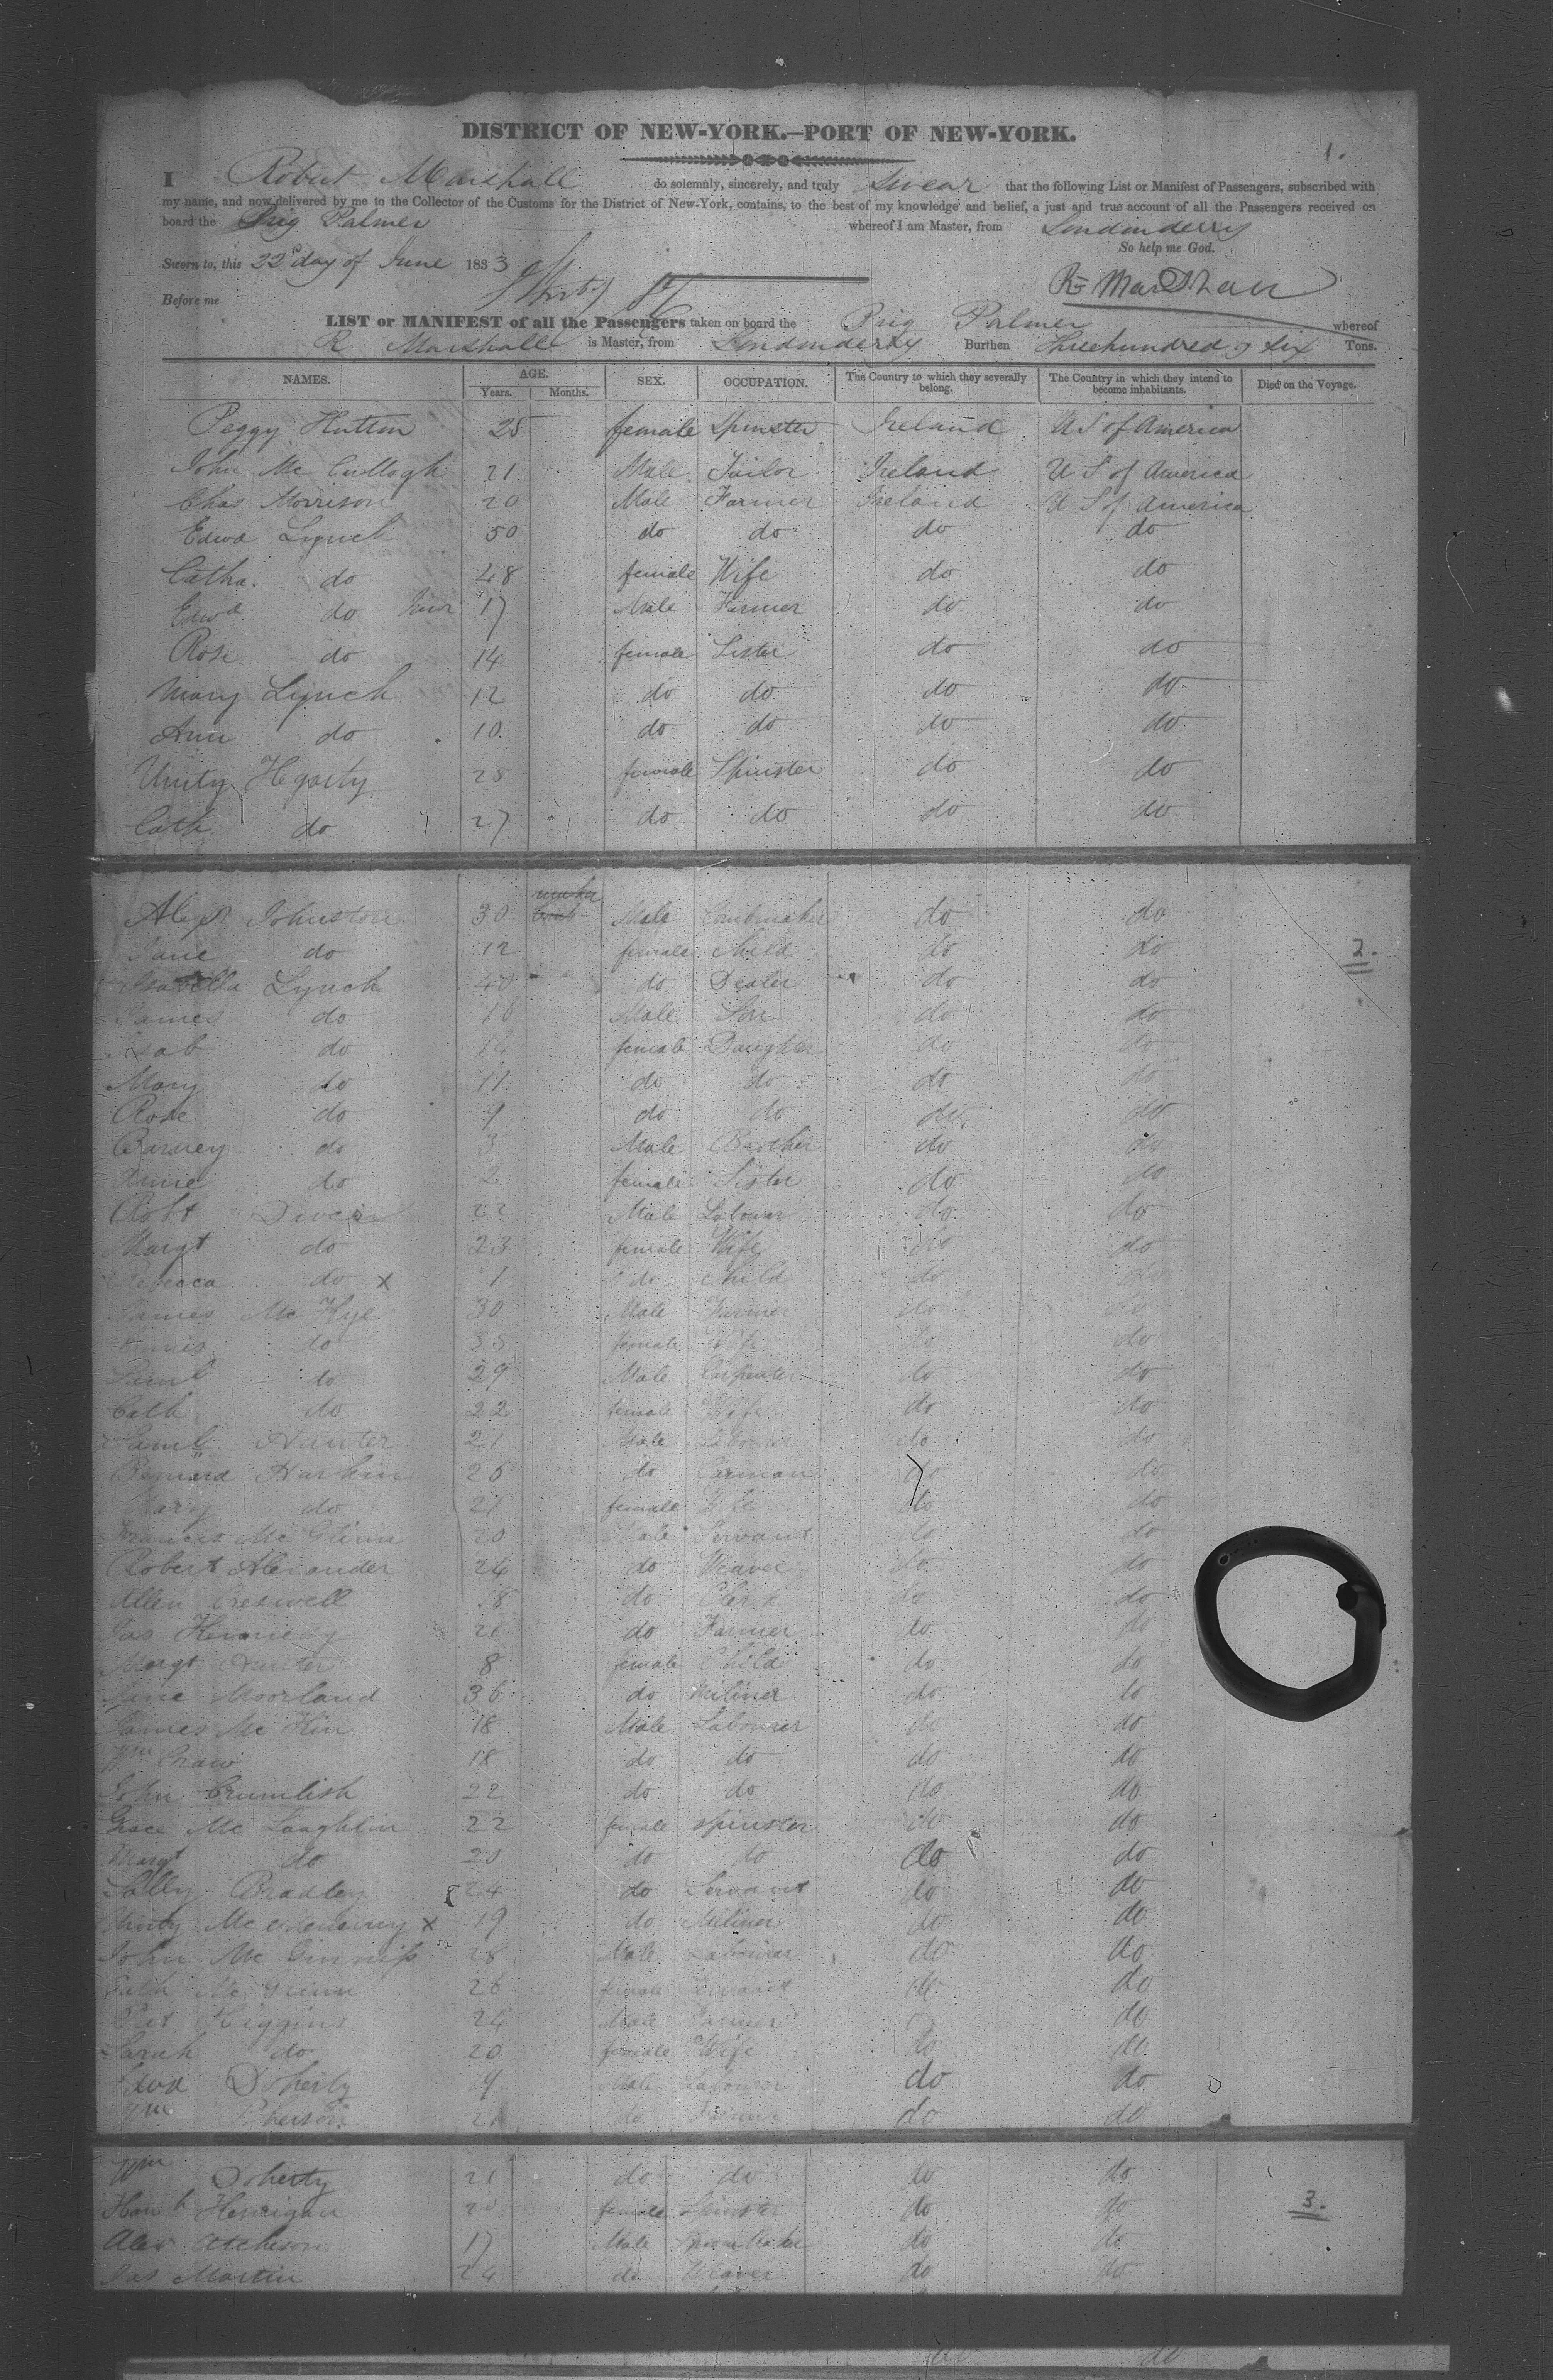 1.
DISTRICT OF NEW-YORK.—PORT OF NEW-YORK.
I Robert Marshall do solemnly, sincerely, and truly swear that the following List or Manifest of Passengers, subscribed with
my name, and now delivered by me to the Collector of the Customs for the District of New-York, contains, to the best of my knowledge and belief, a just and true account of all the Passengers received on
board the Brig Palmer whereof I am Master, from Londonderry
So help me God.
Sworn to, this 22d day of June 1833
Rt Marshall
Before me
LIST or MANIFEST of all the Passengers taken on board the Brig Palmer whereof
R Marshall is Master, from Londonderry Burthen Threehundred & six Tons.
NAMES. AGE. SEX. OCCUPATION. The Country to which they severally belong. The Country in which they intend to become inhabitants. Died on the Voyage.
Years. Months.
Peggy Hutton 25 female Spinster Ireland U S of America
John Mc Cullogh 21 Male Tailor Ireland U S of America
Chas Morrison 20 Male Farmer Ireland U S of America
Edwd Lynch 50 do do do do
Catha. do 48 female Wife do do
Edwd do Junr 17 Male Farmer do do
Rose do 14 female Sister do do
Mary Lynch 12 do do do do
Ann do 10 do do do do
Unity Hegarty 25 female Spinster do do
Cath do 27 do do do do
2.
Alexr Johnston 30 Male Combmaker do do
Jane do 12 female child do do
Isabella Lynch 40 do Dealer do do
James do 16 Male Son do do
Isab do 14 female Daughter do do
Mary do 11 do do do do
Rose do 9 do do do do
Barney do 3 Male Brother do do
Annie do 2 female Sister do do
Robt 22 Male Labourer do do
Margt do 23 female Wife do do
Rebecca do x 1 do child do do
James Mc Kye 30 Male Farmer do do
do 35 female Wife do do
Saml do 29 Male Carpenter do do
Cath do 22 female Wife do do
Saml Hunter 21 Male Labourer do do
Bernard Harkin 26 do Carman do do
Mary do 21 female Wife do do
Francis Mc Glinn 20 Male Servant do do
Robert Alexander 24 do Weaver do do
Allen Creswell 8 do Clerk do do
Jas Kennedy 21 do Farmer do do
Margt Hunter 8 female Child do do
Jane Moorland 36 do Miliner do do
James Mc 18 Male Labourer do do
Wm Craw 18 do do do do
John Crumlish 22 do do do do
Grace Mc Laughlin 22 female spinster do do
Margt do 20 do do do do
Sally Bradley 24 do Servant do do
Unity Mc x 19 do Miliner do do
John Mc Ginniss 28 Male Labourer do do
Cath Mc 26 female Servant do do
Pat Higgins 24 Male Farmer do do
Sarah do 20 female Wife do do
Edwd Doherty 19 Male Labourer do do
Wm 21 do Farmer do do
3.
Wm Doherty 21 do do do do
Hanh 20 female Spinster do do
Alex Atcheson 17 Male do do
Jas Martin 24 do Weaver do do
do do